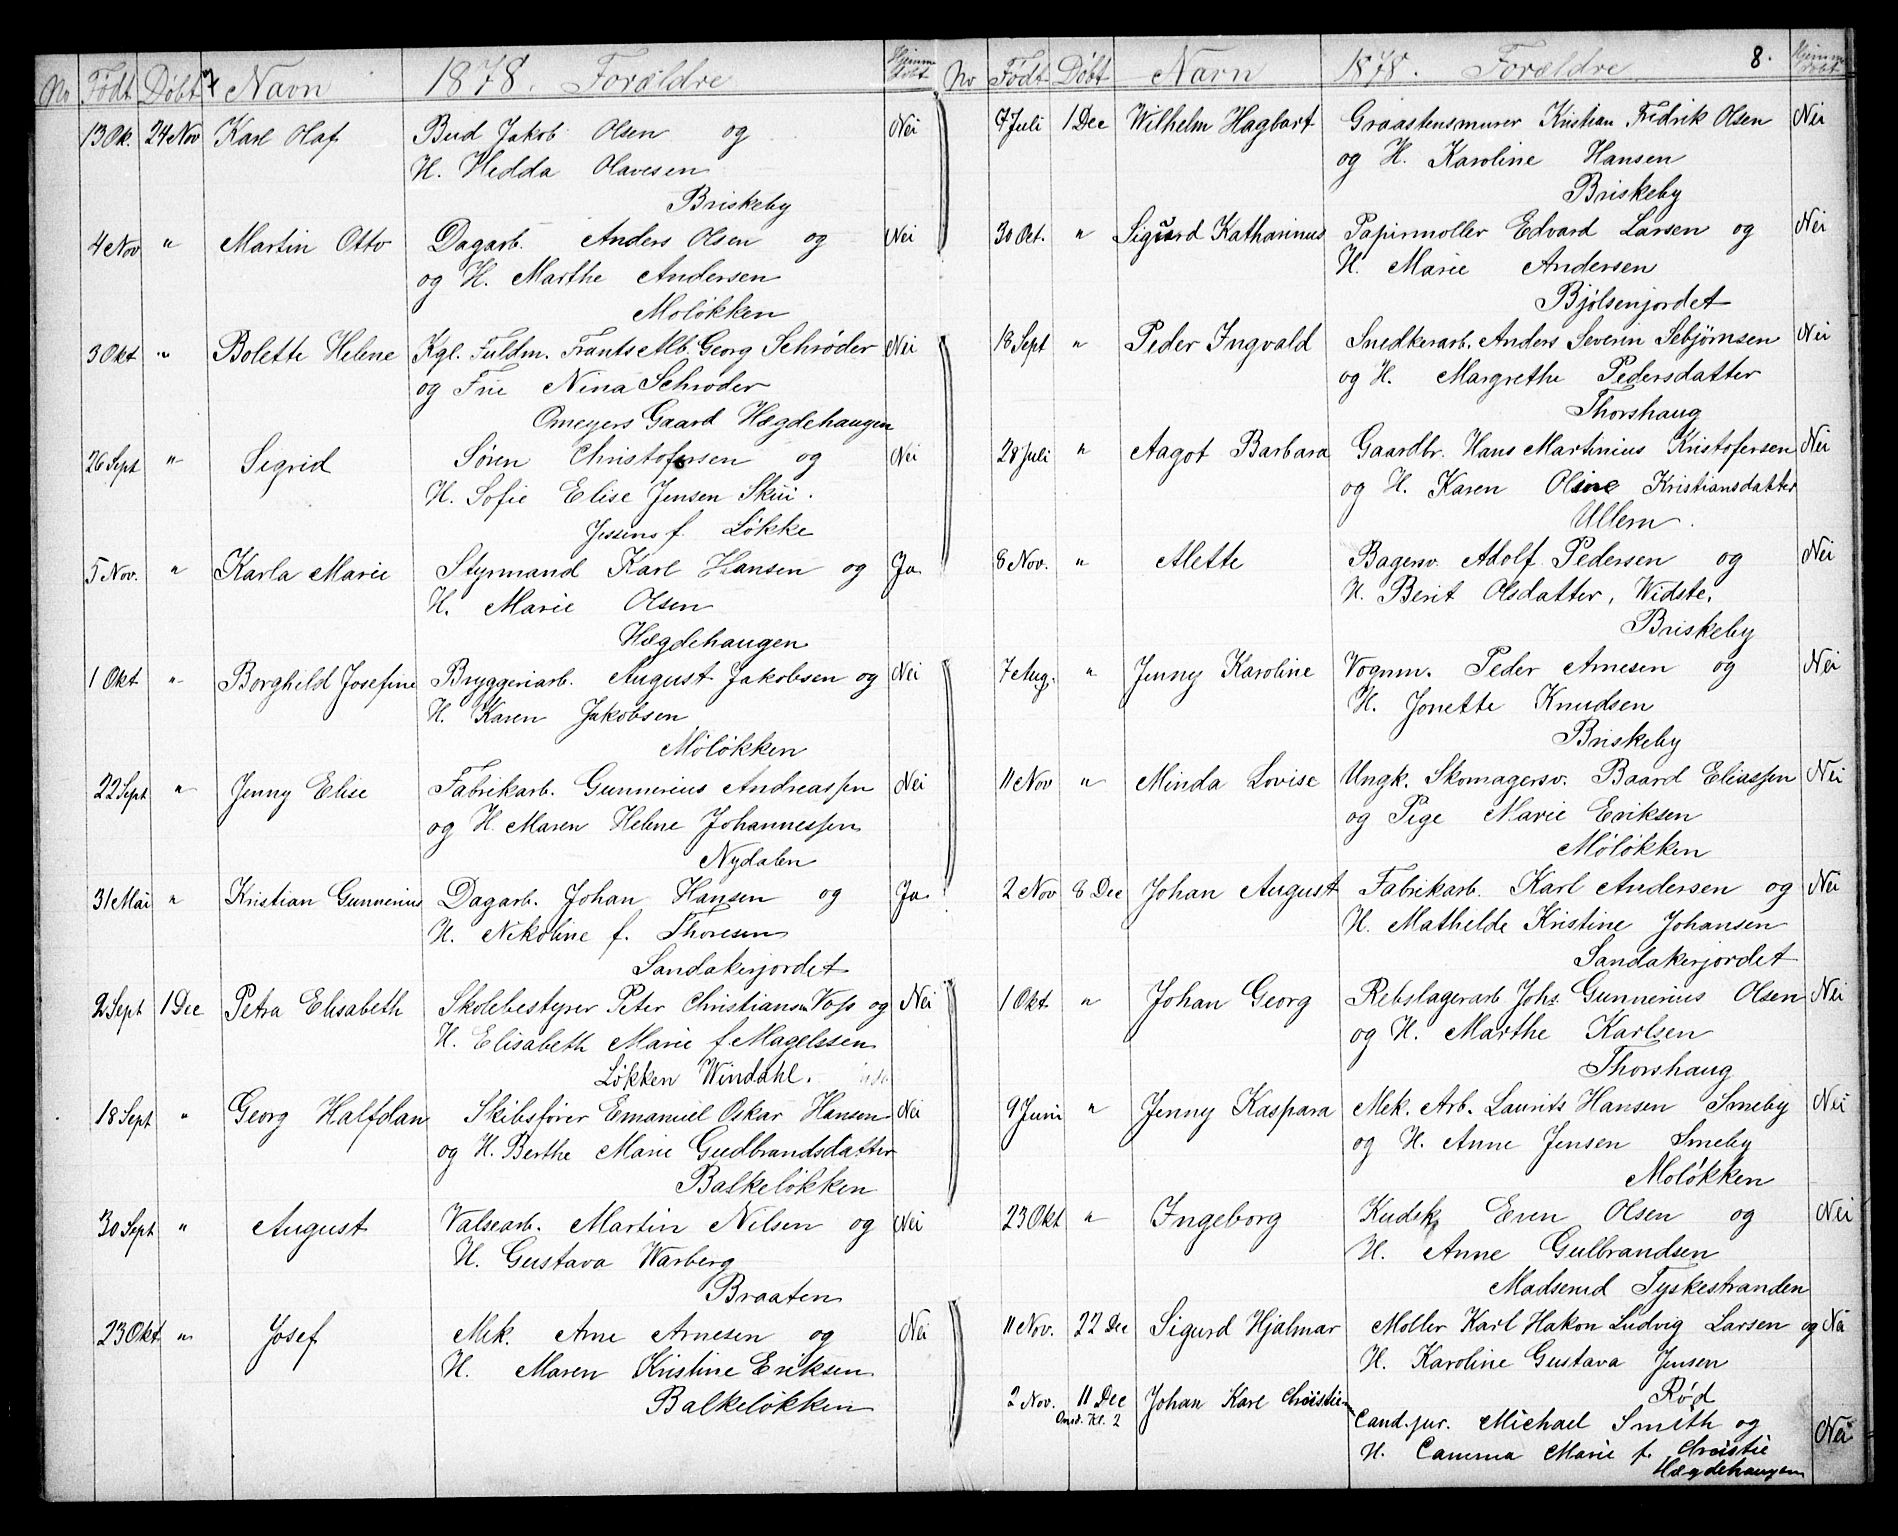 No Født Døbt Navn 1878. Forældre Hjemmedøbt
13 Ok. 24 Nov Karl Olaf Bud Jakob Olsen og Nei
H. Hedda Olavesen
Briskeby
4 Nov " Martin Otto Dagarb. Anders Olsen og Nei
og H. Marthe Andersen
Moløkken
3 Okt " Bolette Helene Kgl. Fuldm. Frants Alb. Georg Schrøder Nei
og Frue Nina Schrøder
Omeyers Gaard Hægdehaugen
26 Sept " Sigrid Søren Christofersen og Nei
H. Sofie Elise Jensen Skui.
Jessens f. Løkke
5 Nov. " Karla Marie Styrmand Karl Hansen og Ja
H. Marie Olsen
Hægdehaugen
1 Okt " Borghild Josefine Bryggeriarb. August Jakobsen og Nei
H. Karen Jakobsen
Møløkken
22 Sept " Jenny Elise Fabrikarb. Gunnerius Andreassen Nei
og H. Maren Helene Johannessen
Nydalen
31 Mai " Kristian Gunnerius Dagarb. Johan Hansen og Ja
H. Nikoline f. Thoresen
Sandakerjordet
2 Sept 1 Dec Petra Elisabeth Skolebestyrer Peter Christiansen Voss og Nei
H. Elisabeth Marie f. Magelssen
Løkken Windahl.
18 Sept " Georg Halfdan Skibsfører Emanuel Oskar Hansen Nei
og H. Berthe Marie Gudbrandsdatter
Balkeløkken
30 Sept " August Valsearb. Martin Nilsen og Nei
H. Gustava Warberg
Braaten
23 Okt " Josef Mek. Arne Arnesen og Nei
H. Maren Kristine Eriksen
Balkeløkken
No Født Døbt Navn 1878. Forældre 8. Hjemmedøbt
7 Juli 1 Dec Wilhelm Hagbart Graastensmurer Kristian Fredrik Olsen Nei
og H. Karoline Hansen
Briskeby
30 Oct. " Sigurd Katharinus Papirmøller Edvard Larsen og Nei
H. Marie Andersen
Bjølsenjordet
18 Sept " Peder Ingvald Snedkerarb. Anders Severin Sebjørnsen Nei
og H. Margrethe Pedersdatter
Thorshaug
28 Juli " Aagot Barbara Gaardbr. Hans Martinius Kristofersen Nei
og H. Karen Oline Kristiansdatter
Ullern.
8 Nov. " Alette Bagersv. Adolf Pedersen og Nei
H. Berit Olsdatter, Widste.
Briskeby
7 Aug. " Jenny Karoline Vognm. Peder Arnesen og Nei
H. Jonette Knudsen
Briskeby
11 Nov " Minda Lovise Ungk. Skomagersv. Baard Eliassen Nei
og Pige Marie Eriksen
Møløkken
2 Nov 8 Dec Johan August Fabrikarb. Karl Andersen og Nei
H. Mathelde Kristine Johansen
Sandakerjordet
1 Okt " Johan Georg Rebslagerarb Johs. Gunnerius Olsen Nei
og H. Marthe Karlsen
Thorshaug
9 Juni " Jenny Kaspara Mek. Arb. Laurits Hansen Smeby Nei
og H. Anne Jensen Smeby
Moløkken
23 Okt " Ingeborg Kudsk Even Olsen og Nei
H. Anne Gulbrandsen
Madserud Tyskestranden
11 Nov. 22 Dec Sigurd Hjalmar Møller Karl Hakon Ludvig Larsen og Nei
H. Karoline Gustava Jensen
Rød
2 Nov. 11 Dec Johan Karl Christie
Onsd. Kl. 2 Cand. jur. Michael Smith og Nei
H. Camma Marie f. Christie
Hægdehaugen